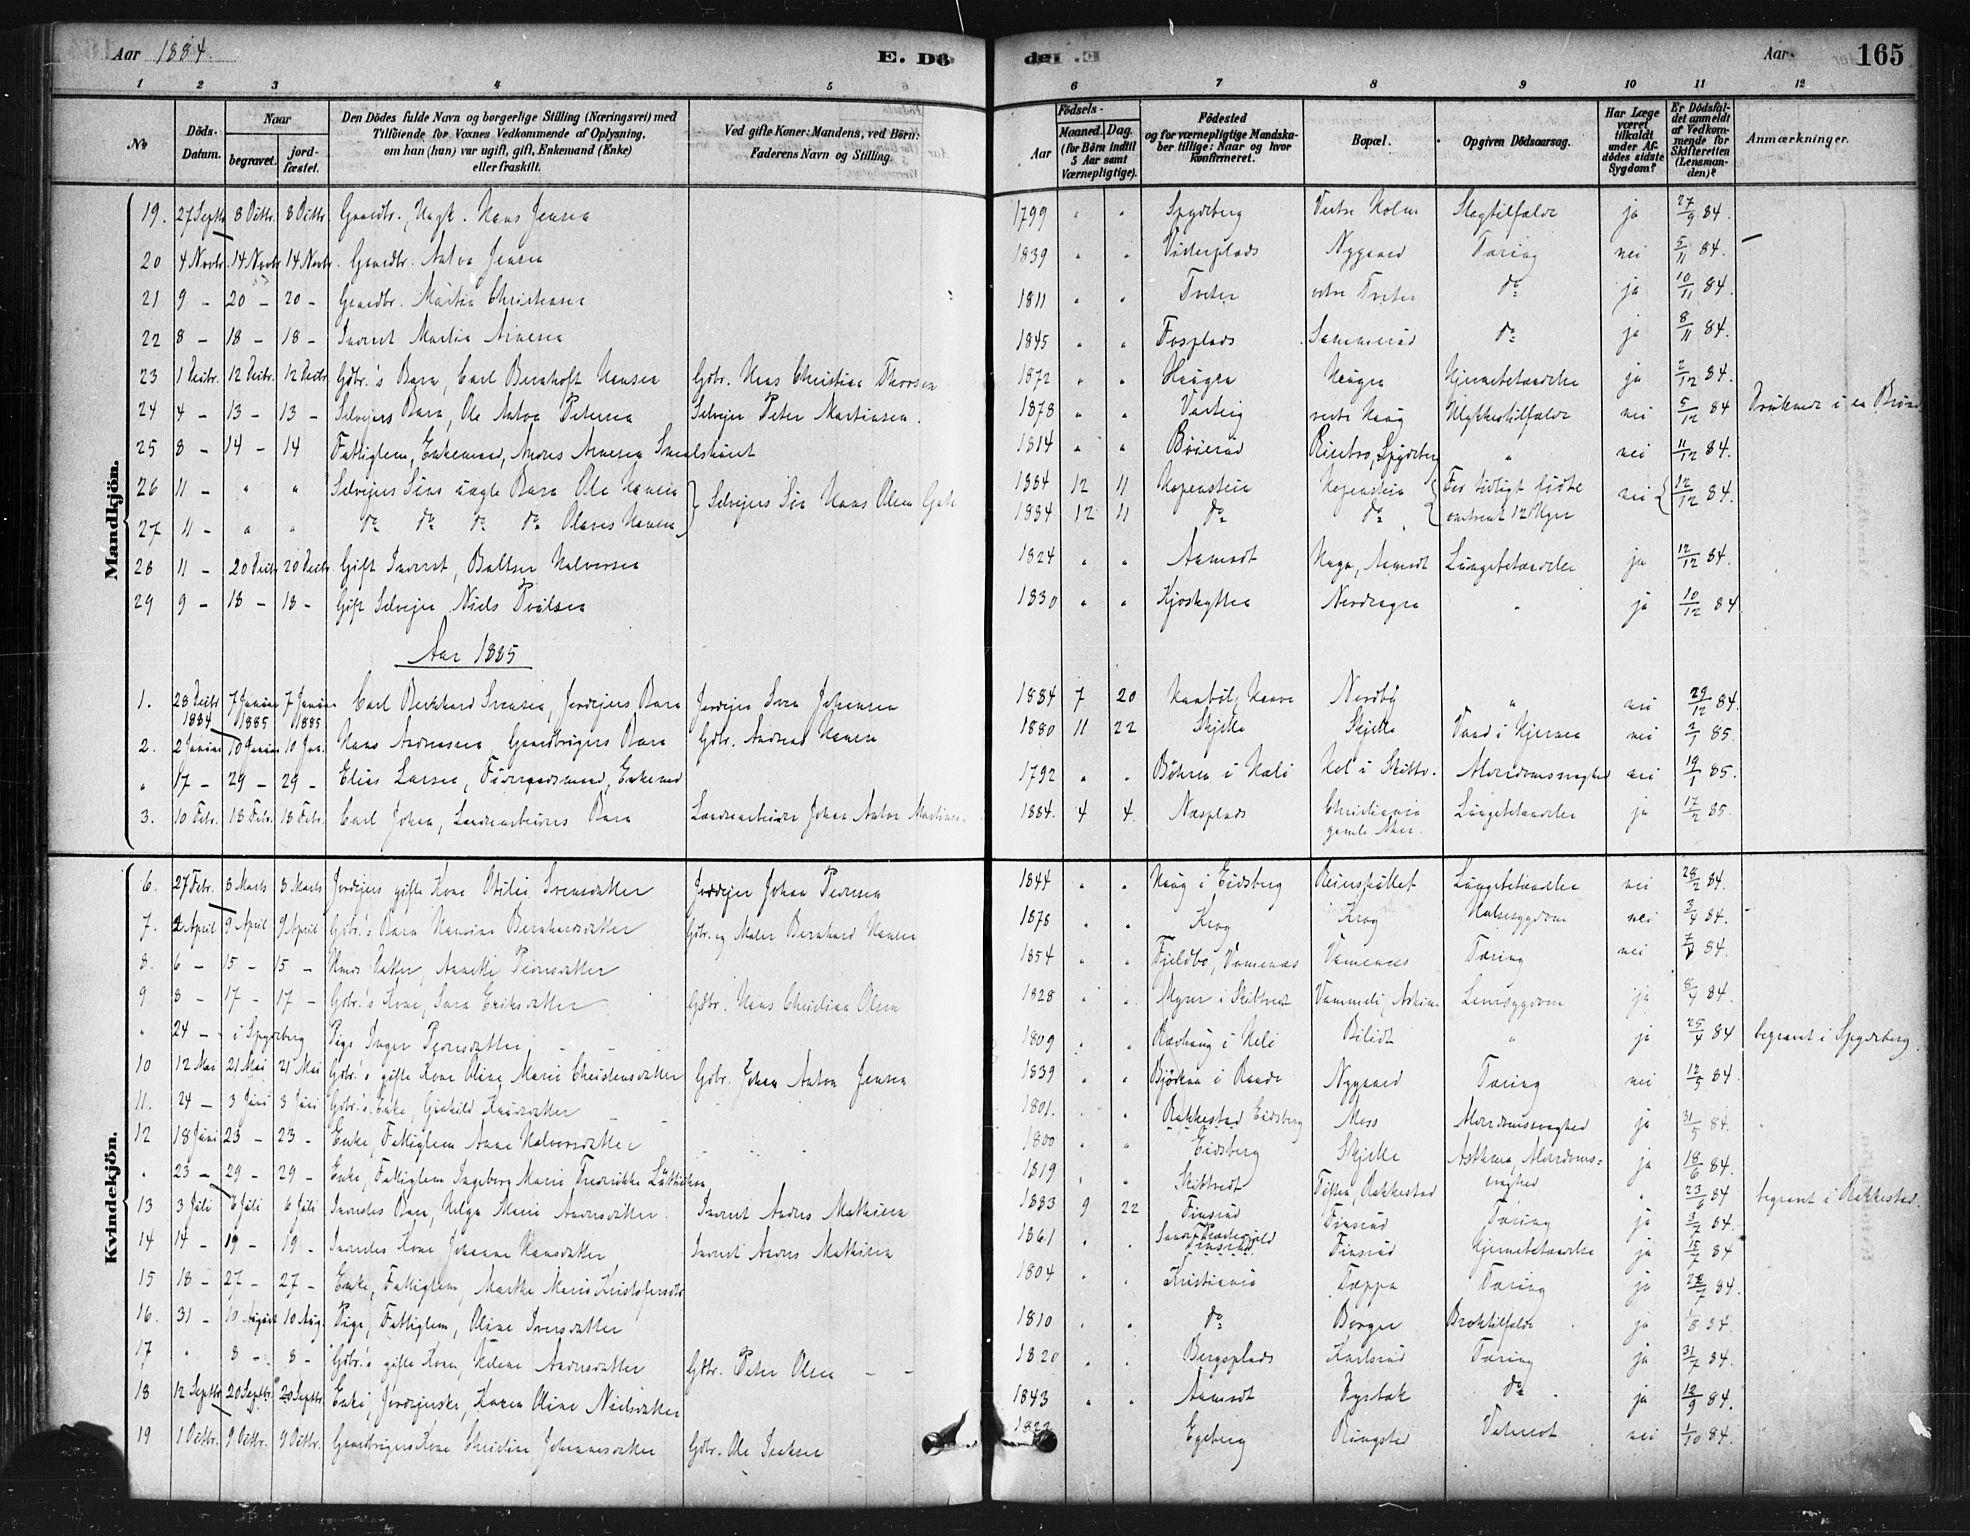 Aar 1884. E. Dö de! Aar 165
1 2 3 4 5 6 7 8 9 10 11 12
No Döds-Datum. Naar begravet. jord-fæstet. Den Dödes fulde Navn og borgerlige Stilling (Næringsvei) med Tilföiende for Voxnes Vedkommende af Oplysning, om han (hun) var ugift, gift, Enkemand (Enke) eller fraskilt. Ved gifte Koner: Mandens, ved Börn: Faderens Navn og Stilling. Födsels- Aar Maaned. Dag. (for Börn indtil 5 Aar samt Værnepligtige). Födested og for værnepligtige Mandskaber tillige: Naar og hvor konfirmeret. Bopæl. Opgiven Dödsaarsag. Har Læge været tilkaldt under Afdödes sidste Sygdom? Er Dödsfaldet anmeldt af Vedkommende for Skifteretten (Lensmanden)? Anmærkninger.
Mandkjön.
19. 27 Septbr 8 Octbr 8 Octbr Gaardbr., Hans Jensen 1799 " " Spydeberg Vestre Holm Slagtilfælde ja 27/9 84.
20 4 Novbr 14 Novbr 14 Novbr. Gaardbr. Anton Jensen 1839 " " Nygaard Tæring nei 5/11 84.
21 9 - 20 - 20 - Gaardbr. Martin Christensen 1811 " " Tveter østre Tveter do ja 10/11 84.
22 8 - 18 - 18 - Inderst Martin Arnesen 1845 " " Fosplads Sammerud do ja 8/11 84.
23 1 Decbr. 12 Decbr. 12 Decbr Gdbr.'s Barn, Carl Bernhoft Hansen Gdbr. Hans Christian Thorsen 1872 " " Haugen Haugen Hjernebetændelse ja 2/12 84.
24 4 - 13 - 13 - Selveiers Barn, Ole Anton Petersen Selveier Peter Martinsen. 1878 " " Varteig nedre Haug Ulykkestilfælde nei 5/12 84 Druknede i en Brønd
25 8 - 14 - 14 Fattiglem, Enkemand, Anders Arnesen 1814 " " Böierud Spydeberg " nei 11/12 84.
26 11 - " " Selveiers Söns uægte Barn Ole Hansen Selveiers Sön Hans Olsen 1884 12 11 Kopenstein Kopenstein For tidligt födte nei 12/12 84.
27 11 - " " do do do do Olaves Hansen 1884 12 11 do do omtrent 12 Uger
28 11 - 20 Decbr 20 Decbr Gift Inderst, Baltser Halvorsen 1824 " " Aamodt Haga, Aamodt Lungebetændelse ja 12/12 84.
29 9 - 18 - 18 - Gift Selveier, Niels Poulsen 1830 " " Kjoshytten " ja 10/12 84
Aar 1885
1. 28 Decbr 1884 7 Januar 1885 7 Januar 1885 Carl Svensen, Jordeiers Barn Jordeier Sven Johansen 1884 7 20 Nordby " nei 29/12 84.
2. 2 Januar 10 Januar 10 Jan. Hans Andreassen, Gaardbrugers Barn Gdbr. Andreas Hansen 1880 11 22 Skjelle Skjelle Vand i Hjernen nei 2/1 85.
" 17 - 29 - 29 - Elias Larsen, Föderaadsmand, Enkemand 1792 " " i Hæli Hol i Skibtv. Alderdomssvaghed nei 19/1 85.
3. 10 Febr. 18 Febr. 18 Febr. Carl Johan, Landarbeiders Barn Landarbeider Johan Anton Martinsen 1884. 4 4. Næsplads Christiania gamle Aker. Lungebetændelse ja 17/2 85.
Kvindekjön.
6. 27 Febr. 8 Marts 8 Marts Jordeiers gifte Kone Otilie Svensdatter Jordeier Johan Pedersen 1844 " " Haug i Eidsberg Lungebetændelse nei 28/2 84.
7. 2 April 9 April 9 April Gdbr.'s Barn Hansine Bernhardsdatter Gdbr. og Maler Bernhard Hansen 1878 " " Krog Krog Halssygdom nei 3/4 84.
8. 6 - 15 - 15 - Datter, Annette Pedersdatter 1854 " " Fjeldbo, Vamenæs Vamenæs Tæring nei 7/4 84.
9 8 - 17 - 17 - Gdbr.'s Kone, Sara Eriksdatter Gdbr. Hans Christian Olsen 1828 " " Myrer i Skibtvedt Vammeli, Askim Lemsygdom ja 8/4 84.
" 24 - i Spydeberg Pige Inger Pedersdatter 1809 " " i Heli " ja 25/4 84 begravet i Spydeberg.
10 12 Mai 21 Mai 21 Mai Gdbr.'s gifte Kone Oline Marie Christensdatter Gdbr. Johan Anton Jensen 1839 " " Björken i Raade Nygaard Tæring nei 12/5 84.
11. 24 - 3 Juni 3 Juni Gdbr.'s Enke, Gunhild Knudsdatter 1801. " " Rakkestad Eidsberg Moss Alderdomssvaghed ja 31/5 84.
12 18 Juni 23 - 23 - Enke, Fattiglem Anne Halvorsdatter 1800 " " Eidsberg Skjelle Asthma, Alderdoms= ja 18/6 84.
" 23 - 29 - 29 - Enke, Fattiglem Ingeborg Marie Fredrikke 1819 " " Skibtvedt Rakkestad svaghed " 23/6 84 begravet i Rakkestad.
13 3 Juli 6 Juli 6 Juli Inderstes Barn, Helga Marie Andersdatter. Inderst Anders Mathisen 1883 9 22 Finsrud Finsrud Tæring ja 3/7 84.
14 14 - 19 - 19 - Inderstes Kone Johanne Hansdatter Inderst Anders Mathisen 1861 " " Finsrud Finsrud Hjernebetændelse ja 15/7 84
15 18 - 27 - 27 - Enke, Fattiglem, Marthe Marie Kristofersdtr 1804 " " Kristiania Tæppa Tæring ja 22/7 84.
16. 31 - 10 August 10 Aug. Pige, Fattiglem, Oline Iversdatter 1810 " " do Borger Broktilfælde ja 1/8 84.
17 " 8 - 8 - Gdbr.'s gifte Kone, Helene Andersdatter Gdbr. Peter Olsen 1820 " " Bergsplads Karlsrud Tæring ja 31/7 84.
18 12 Septbr 20 Septbr. 20 Septbr Enke, Jordeierske, Karen Oline Nielsdatter 1843 " " Aamodt Rystak do ja 12/9 84.
19 1 Octbr. 9 Octbr. 9 Octbr. Gaardbrugers Kone Christine Johannesdatter Gdbr. Ole Isaksen 1822 Egeberg Ringstad nei 2/10 84.